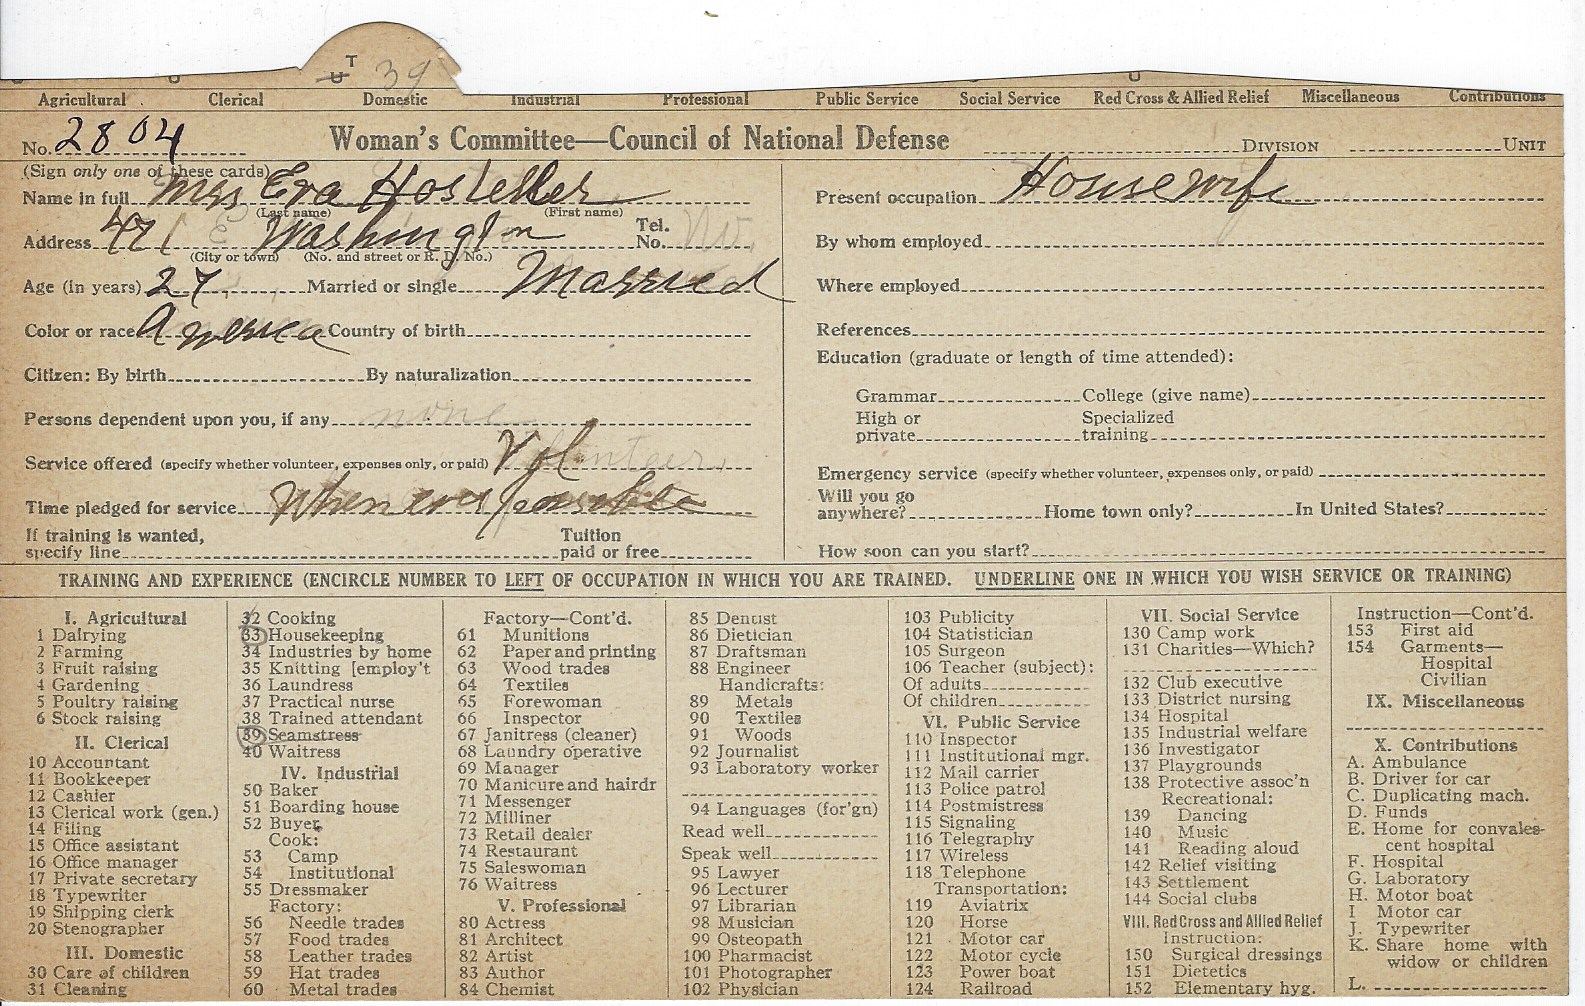 U T 39
Agricultural Clerical Domestic Industrial Professional Public Service Social Service Red Cross & Allied Relief Miscellaneous Contributions
No. 2804 Woman's Committee—Council of National Defense DIVISION UNIT
(Sign only one of these cards)
Name in full Mrs Eva Hostetler
(Last name) (First name)
Address 471 E Washington Tel. No. No.
(City or town) (No. and street or R. D. No.)
Age (in years) 27 Married or single Married
Color or race America Country of birth
Citizen: By birth By naturalization
Persons dependent upon you, if any none
Service offered (specify whether volunteer, expenses only, or paid) Vol. Volunteer
Time pledged for service Whenever possible
If training is wanted, specify line Tuition paid or free
Present occupation Housewife
By whom employed
Where employed
References
Education (graduate or length of time attended):
Grammar College (give name)
High or private Specialized training
Emergency service (specify whether volunteer, expenses only, or paid)
Will you go anywhere? Home town only? In United States?
How soon can you start?
TRAINING AND EXPERIENCE (ENCIRCLE NUMBER TO LEFT OF OCCUPATION IN WHICH YOU ARE TRAINED. UNDERLINE ONE IN WHICH YOU WISH SERVICE OR TRAINING)
I. Agricultural
1 Dairying
2 Farming
3 Fruit raising
4 Gardening
5 Poultry raising
6 Stock raising
II. Clerical
10 Accountant
11 Bookkeeper
12 Cashier
13 Clerical work (gen.)
14 Filing
15 Office assistant
16 Office manager
17 Private secretary
18 Typewriter
19 Shipping clerk
20 Stenographer
III. Domestic
30 Care of children
31 Cleaning
32 Cooking
33 Housekeeping
34 Industries by home
35 Knitting [employ't
36 Laundress
37 Practical nurse
38 Trained attendant
39 Seamstress
40 Waitress
IV. Industrial
50 Baker
51 Boarding house
52 Buyer
Cook:
53 Camp
54 Institutional
55 Dressmaker
Factory:
56 Needle trades
57 Food trades
58 Leather trades
59 Hat trades
60 Metal trades
Factory—Cont'd.
61 Munitions
62 Paper and printing
63 Wood trades
64 Textiles
65 Forewoman
66 Inspector
67 Janitress (cleaner)
68 Laundry operative
69 Manager
70 Manicure and hairdr
71 Messenger
72 Milliner
73 Retail dealer
74 Restaurant
75 Saleswoman
76 Waitress
V. Professional
80 Actress
81 Architect
82 Artist
83 Author
84 Chemist
85 Dentist
86 Dietician
87 Draftsman
88 Engineer
Handicrafts:
89 Metals
90 Textiles
91 Woods
92 Journalist
93 Laboratory worker
94 Languages (for'gn)
Read well
Speak well
95 Lawyer
96 Lecturer
97 Librarian
98 Musician
99 Osteopath
100 Pharmacist
101 Photographer
102 Physician
103 Publicity
104 Statistician
105 Surgeon
106 Teacher (subject):
Of adults
Of children
VI. Public Service
110 Inspector
111 Institutional mgr.
112 Mail carrier
113 Police patrol
114 Postmistress
115 Signaling
116 Telegraphy
117 Wireless
118 Telephone
Transportation:
119 Aviatrix
120 Horse
121 Motor car
122 Motor cycle
123 Power boat
124 Railroad
VII. Social Service
130 Camp work
131 Charities—Which?
132 Club executive
133 District nursing
134 Hospital
135 Industrial welfare
136 Investigator
137 Playgrounds
138 Protective assoc'n
Recreational:
139 Dancing
140 Music
141 Reading aloud
142 Relief visiting
143 Settlement
144 Social clubs
VIII. Red Cross and Allied Relief
Instruction:
150 Surgical dressings
151 Dietetics
152 Elementary hyg.
Instruction—Cont'd.
153 First aid
154 Garments—
Hospital
Civilian
IX. Miscellaneous
X. Contributions
A. Ambulance
B. Driver for car
C. Duplicating mach.
D. Funds
E. Home for convales-
cent hospital
F. Hospital
G. Laboratory
H. Motor boat
I Motor car
J. Typewriter
K. Share home with
widow or children
L.